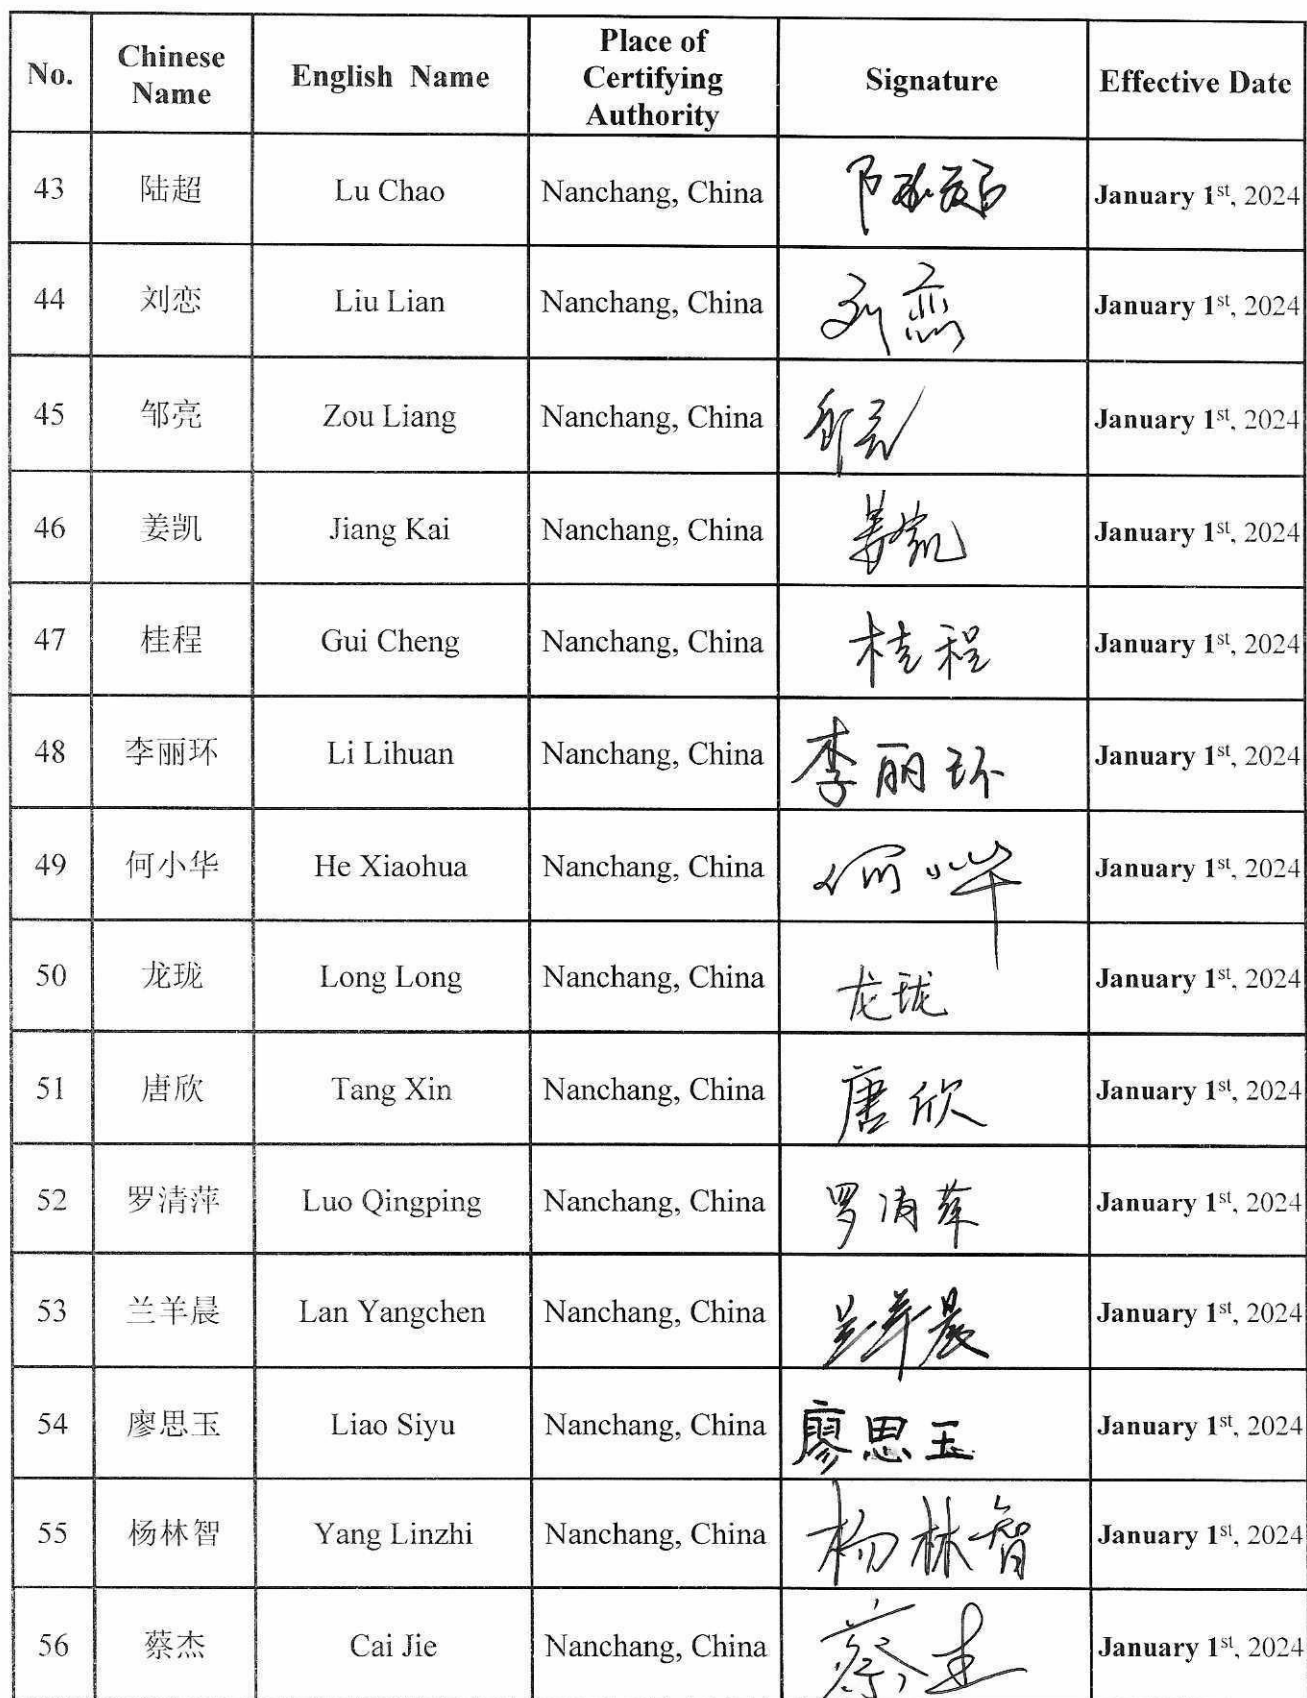 No. Chinese Name English Name Place of Certifying Authority Signature Effective Date
43 陆超 Lu Chao Nanchang, China January 1st, 2024
44 刘恋 Liu Lian Nanchang, China 刘恋 January 1st, 2024
45 邹亮 Zou Liang Nanchang, China 邹亮 January 1st, 2024
46 姜凯 Jiang Kai Nanchang, China 姜凯 January 1st, 2024
47 桂程 Gui Cheng Nanchang, China 桂程 January 1st, 2024
48 李丽环 Li Lihuan Nanchang, China 李丽环 January 1st, 2024
49 何小华 He Xiaohua Nanchang, China 何小华 January 1st, 2024
50 龙珑 Long Long Nanchang, China 龙珑 January 1st, 2024
51 唐欣 Tang Xin Nanchang, China 唐欣 January 1st, 2024
52 罗清萍 Luo Qingping Nanchang, China 罗清萍 January 1st, 2024
53 兰羊晨 Lan Yangchen Nanchang, China 兰羊晨 January 1st, 2024
54 廖思玉 Liao Siyu Nanchang, China 廖思玉 January 1st, 2024
55 杨林智 Yang Linzhi Nanchang, China 杨林智 January 1st, 2024
56 蔡杰 Cai Jie Nanchang, China 蔡杰 January 1st, 2024